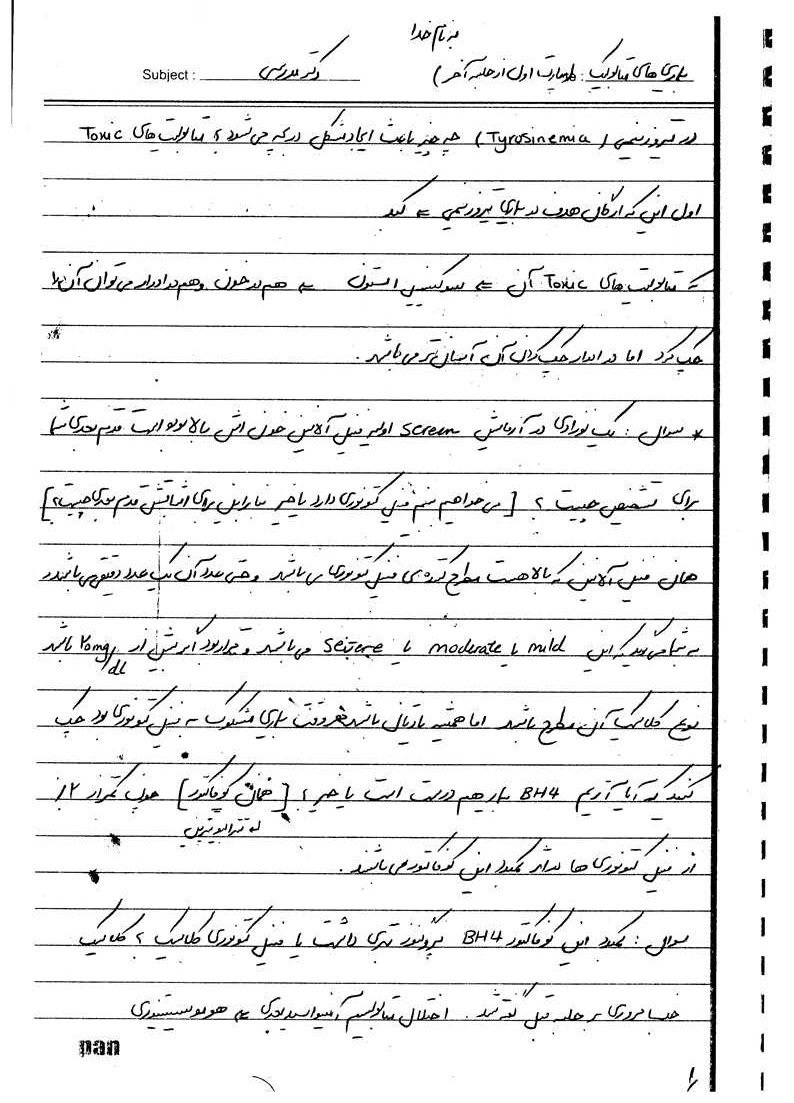 به نام خدا
بیماری های متابولیک: (عبارت اول از جلسه آخر) Subject : دکتر مدرسی
در تیروزینمی (Tyrosinemia) چه چیز باعث ایجاد مشکل در کبد می شود؟ متابولیت های Toxic
اول این که ارگان هدف در بیماری تیروزینمی ← کبد
که متابولیت های Toxic آن ← سوکسینیل استون ← هم در خون و هم در ادرار می توان آن را
چک کرد اما در ادرار چک کردن آن آسان تر می باشد.
* سوال: یک نوزادی در آزمایش screen اولیه فنیل آلانین خون اش بالا بوده است قدم بعدی شما
برای تشخیص چیست؟ [می خواهیم ببینیم فنیل کتونوری دارد یا خیر بنابراین برای اثباتش قدم بعدی چیست؟]
همان فنیل آلانین که بالا هست مطرح کننده ی فنیل کتونوری می باشد و حتی عدد آن یک عدد دقیق می باشد و
به شما می گوید که این mild یا moderate یا severe می باشد و قرار بود اگر بیش از ۲۰mg/dL باشد
نوع کلاسیک آن مطرح باشد اما همیشه یادتان باشد هر وقت بیماری مشکوک به فنیل کتونوری بود چک
کنید که آیا آنزیم BH4 بیمار هم درست است یا خیر؟ [همان کوفاکتور] چون کمتر از ۲٪
که تترابیوپترین
از فنیل کتونوری ها بخاطر کمبود این کوفاکتور می باشند.
سوال: کمبود این کوفاکتور BH4 پروگنوز بدتری داشت یا فنیل کتونوری کلاسیک؟ کلاسیک
خب مروری بر جلسه قبل گفته شد. اختلال متابولیسم آمینواسید بعدی ← هوموسیستینوری
pan
۱